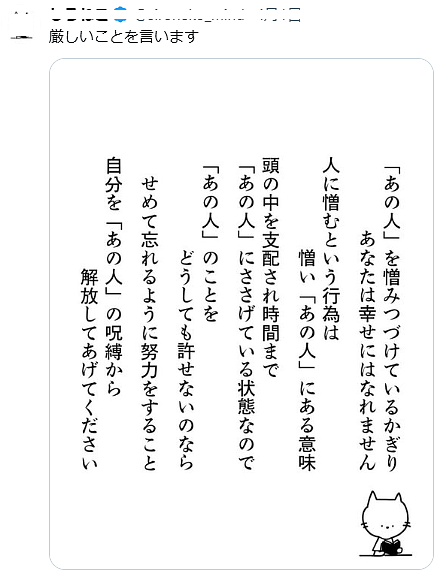 厳しいことを言います
「あの人」を憎みつづけているかぎり
あなたは幸せにはなれません
人に憎むという行為は
憎い「あの人」にある意味
頭の中を支配され時間まで
「あの人」にささげている状態なので
「あの人」のことを
どうしても許せないのなら
せめて忘れるように努力をすること
自分を「あの人」の呪縛から
解放してあげてください